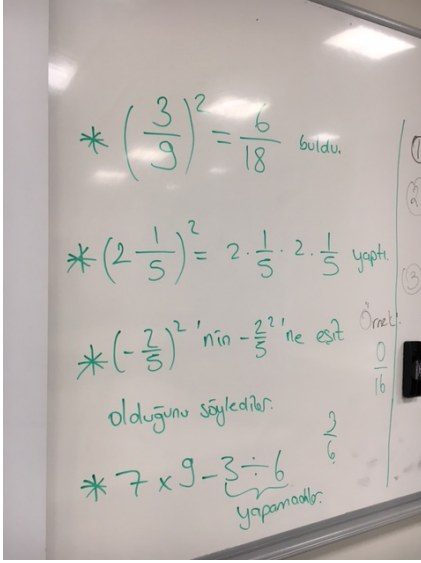 * (3/9)² = 6/18 buldu.
* (2 1/5)² = 2 · 1/5 · 2 · 1/5 yaptı.
* (-2/5)² 'nin -2²/5 'ne eşit
olduğunu söylediler.
* 7 x 9 - 3 ÷ 6
yapamadılar.
Örnek:
0/16
3/6
①
②
③